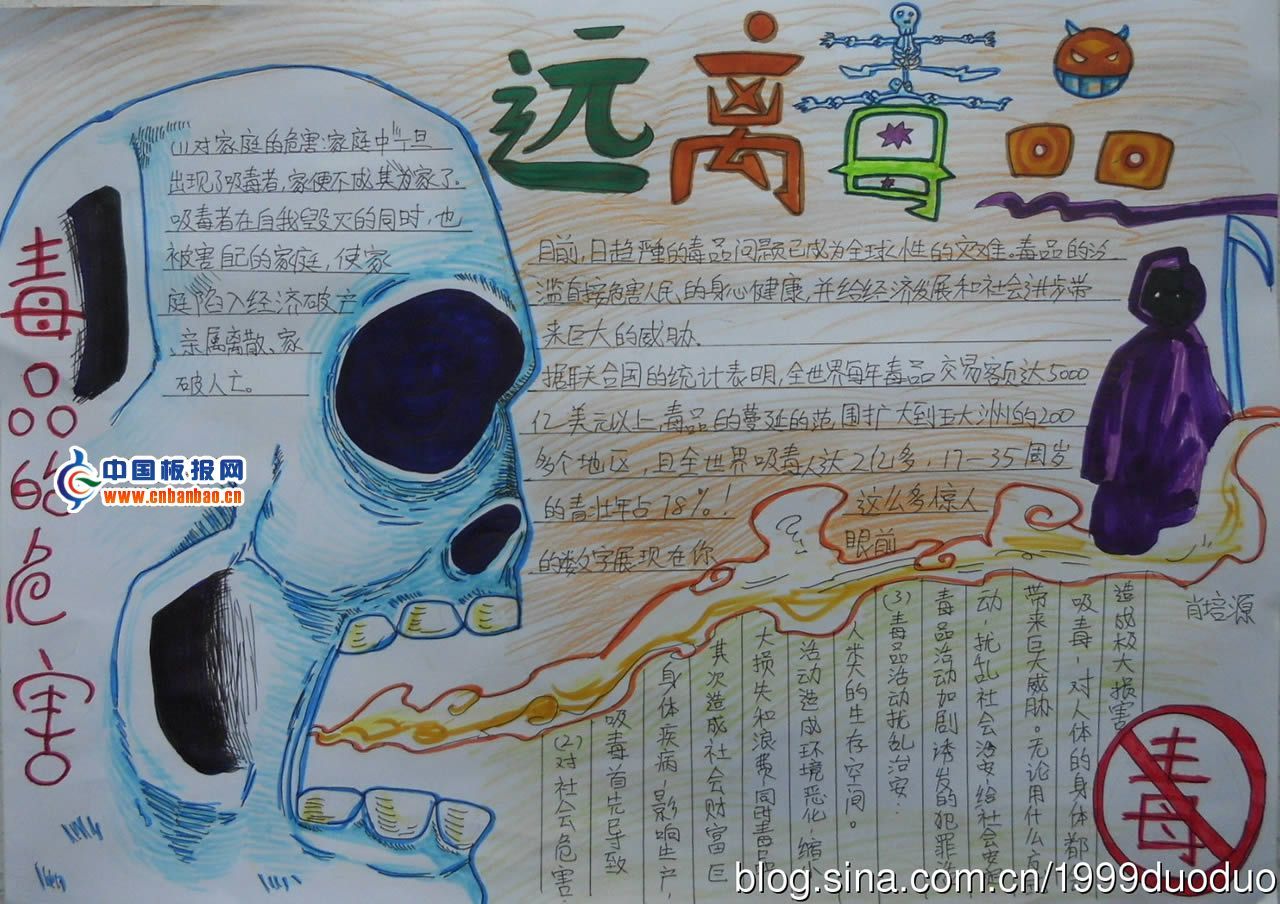 远离毒品
毒品的危害
(1)对家庭的危害:家庭中一旦
出现了吸毒者,家便不成其为家了。
吸毒者在自我毁灭的同时,也
被害自己的家庭,使家
庭陷入经济破产
、亲属离散、家
破人亡。
目前,日趋严重的毒品问题已成为全球性的灾难。毒品的泛
滥直接危害人民的身心健康,并给经济发展和社会进步带
来巨大的威胁.
据联合国的统计表明,全世界每年毒品交易额达5000
亿美元以上,毒品的蔓延的范围扩大到五大洲的200
多个地区,且全世界吸毒人达2亿多,17-35周岁
的青壮年占78%! 这么多惊人
的数字展现在你 眼前
(2)对社会危害
吸毒首先导致
身体疾病,影响生产,
其次造成社会财富巨
大损失和浪费,同时毒品
活动造成环境恶化,缩小
人类的生存空间。
(3)毒品活动扰乱治安:
毒品活动加剧诱发的犯罪活
动,扰乱社会治安,给社会安
带来巨大威胁。无论用什么方
吸毒,对人体的身体都
造成极大损害
肖培源
毒
中国板报网
www.cnbanbao.cn
blog.sina.com.cn/1999duoduo